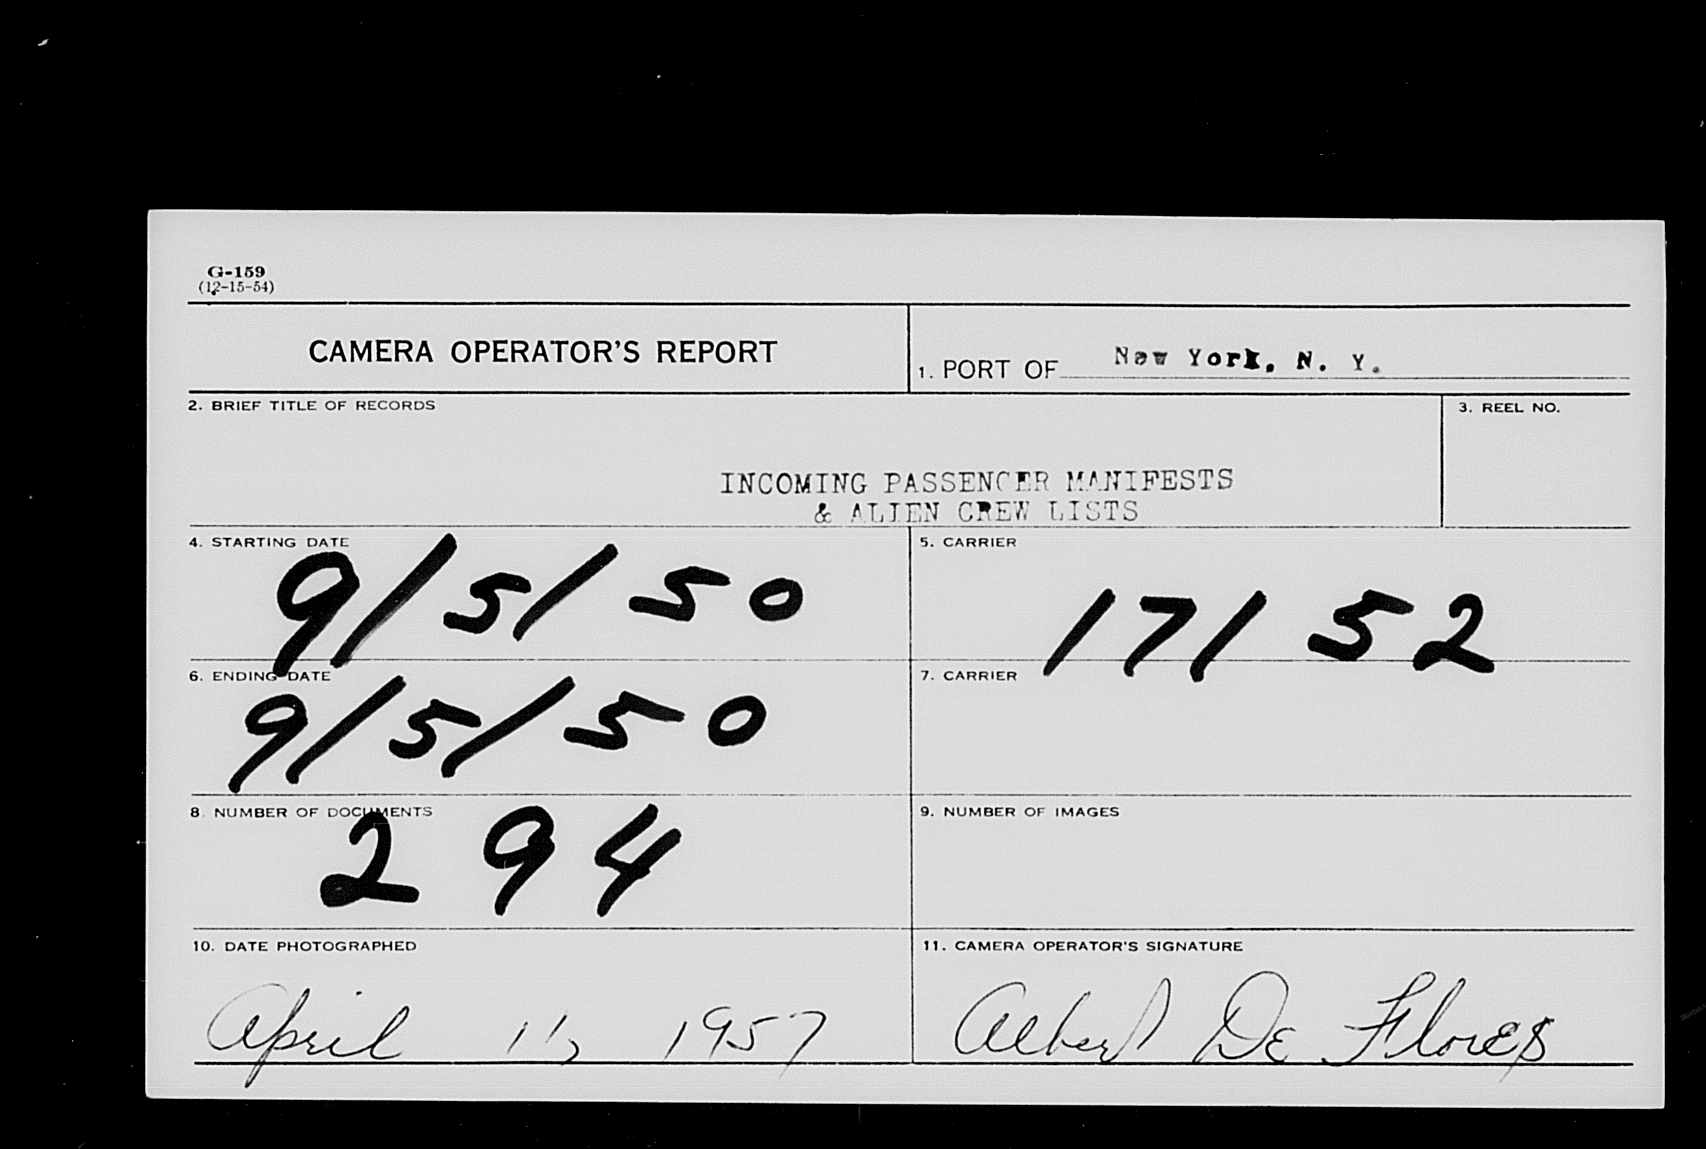 G-159
(12-15-54)
CAMERA OPERATOR'S REPORT
1. PORT OF New York, N. Y.
2. BRIEF TITLE OF RECORDS
3. REEL NO.
INCOMING PASSENGER MANIFESTS
& ALIEN CREW LISTS
4. STARTING DATE
9/5/50
5. CARRIER
17152
6. ENDING DATE
9/5/50
7. CARRIER
8. NUMBER OF DOCUMENTS
294
9. NUMBER OF IMAGES
10. DATE PHOTOGRAPHED
April 11, 1957
11. CAMERA OPERATOR'S SIGNATURE
Albert De Flores